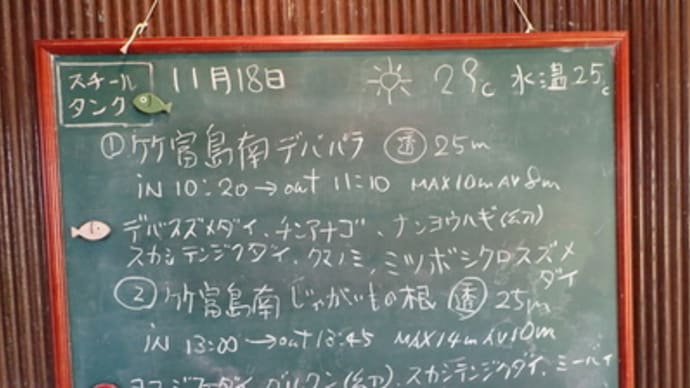 スチール
タンク
11月18日 29℃ 水温25℃
① 竹富島南デバパラ 透 25m
iN 10:20→out 11:10 MAX10m AV8m
デバスズメダイ、チンアナゴ、ナンヨウハギ(幼)
スカシテンジクダイ、クマノミ、ミツボシクロスズメ
ダイ
② 竹富島南じゃがいもの根 透 25m
iN 13:00→out13:45 MAX14m AV10m
グルクン(幼)、スカシテンジクダイ、ミーバイ